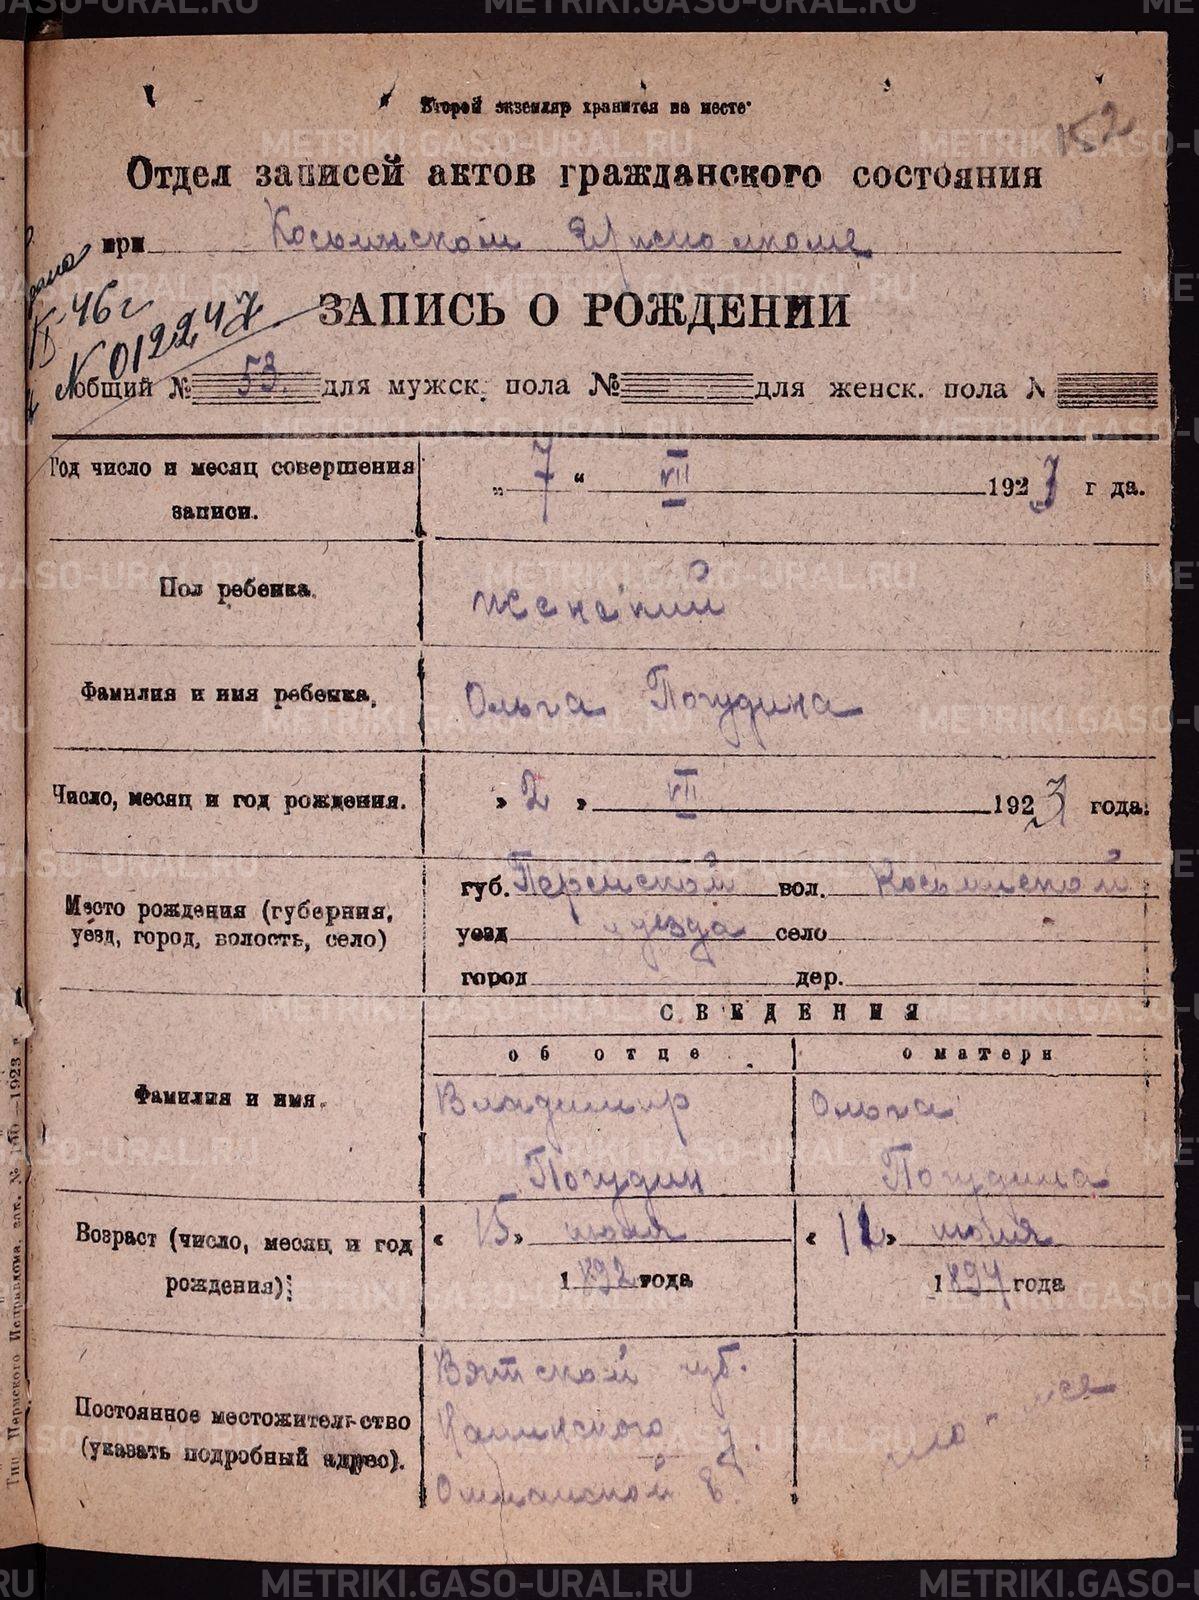 152
Второй экземляр хранится на месте
Отдел записей актов гражданского состояния
при Косьинском Рисполкоме
46 г
ЗАПИСЬ О РОЖДЕНИИ
№ 012247
общий № 53. для мужск. пола № для женск. пола №
Год число и месяц совершения записи.
„ 7 “ VII 1923 г да.
Пол ребенка.
женский
Фамилия и имя ребенка.
Ольга Погудина
Число, месяц и год рождения.
„ 2 „ VII 1923 года.
Место рождения (губерния,
уезд, город, волость, село)
губ. Пермской вол. Косьинской
уезд уезда село
город дер.
СВЕДЕНИЯ
об отце о матери
Фамилия и имя.
Владимир Ольга
Погудин Погудина
Возраст (число, месяц и год
рождения)
« 15 » июля « 11 » июля
1892 года 1894 года
Постоянное местожительство
(указать подробный адрес).
Вятской губ.
у.
в.
то же
Тип. Пермского Исправдома, зак. № —1923 г.
METRIKI.GASO-URAL.RU